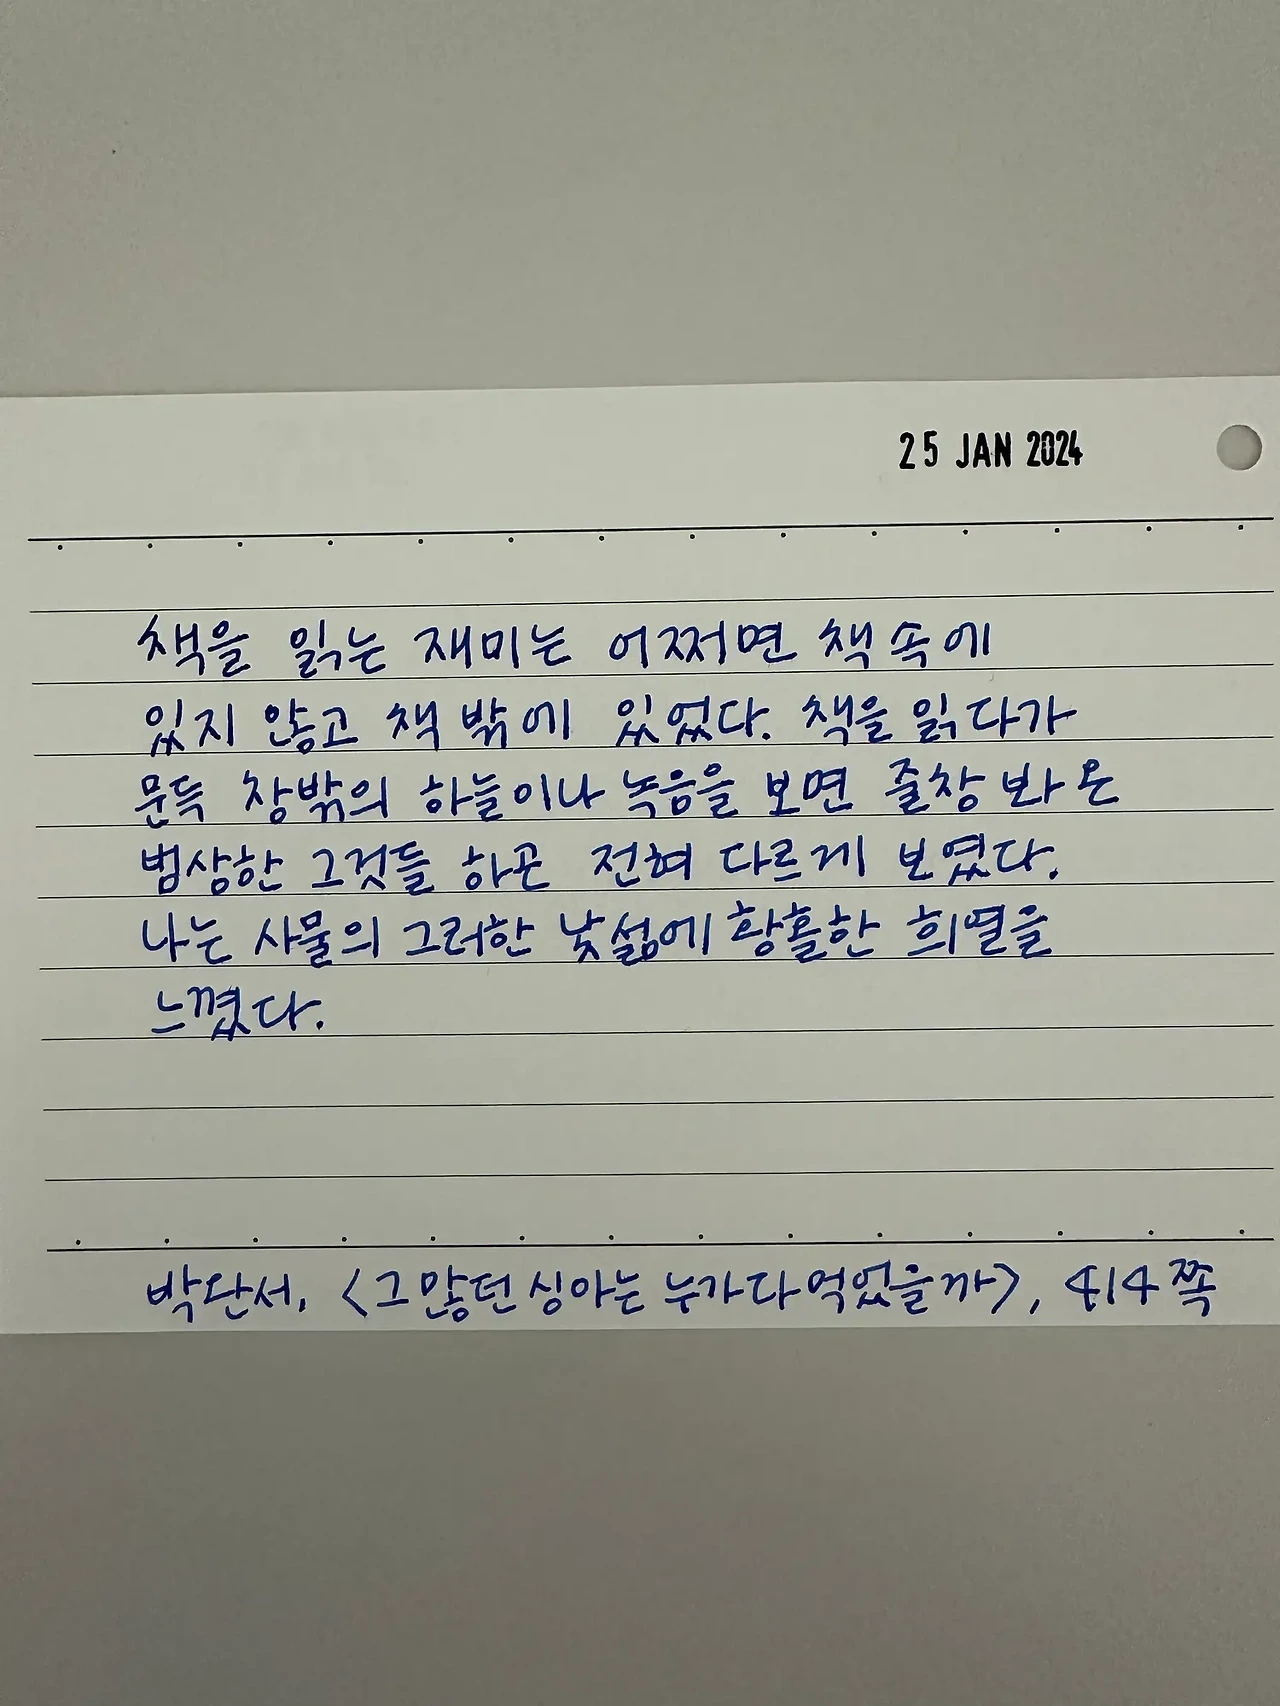 25 JAN 2024
책을 읽는 재미는 어쩌면 책 속에
있지 않고 책 밖에 있었다. 책을 읽다가
문득 창밖의 하늘이나 녹음을 보면 줄창 봐 온
범상한 그것들 하곤 전혀 다르게 보였다.
나는 사물의 그러한 낯섦에 황홀한 희열을
느꼈다.
박완서, <그 많던 싱아는 누가 다 먹었을까>, 414쪽